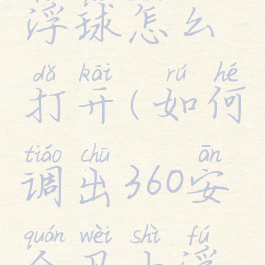 浮球怎么
dǎ kāi rú hé
打开(如何
tiáo chū ān
调出360安
quán wèi shì fú